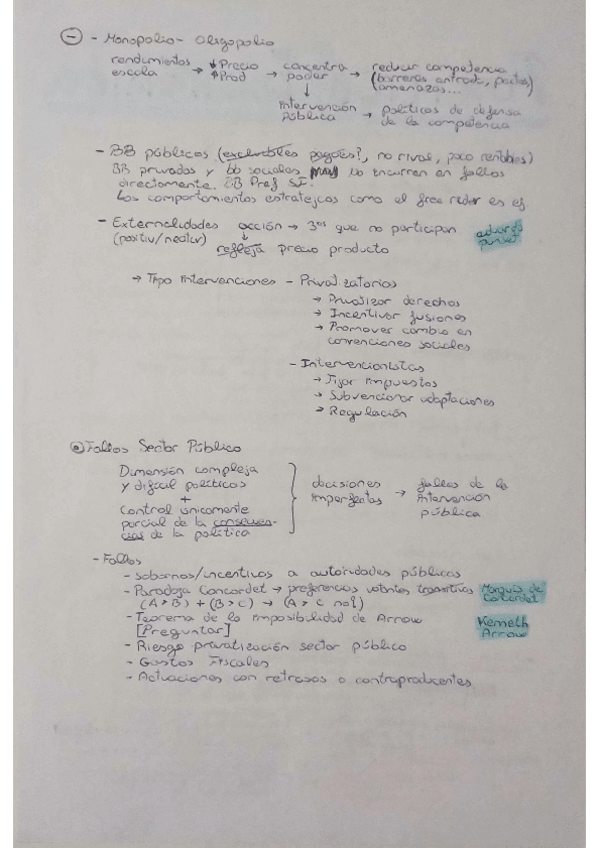 - Monopolio - Oligopolio
rendimientos escala → ↓ Precio ↑ Prod → concentra poder → reducir competencia (barreras entrad, pactos, amenazas...
↓
Intervención pública → políticas de defensa de la competencia
- BB públicos (excluibles pagoes?, no rival, poco rentables)
BB privados y bb sociales no incurren en fallos
directamente. BB Pref SI.
Los comportamientos estrategicos como el free rider es ej
- Externalidades acción → 3ºs que no participan
(positiv/negtiv) ↓
refleja precio producto
→ Tipo intervenciones - Privatizatorios
→ Privatizar derechos
→ Incentivar fusiones
→ Promover cambio en
convenciones sociales
- Intervencionistas
→ Fijar impuestos
→ Subvencionar adaptaciones
→ Regulación
Fallos Sector Público
Dimensión compleja
y difícil políticos
+
Control únicamente
parcial de la consecuen-
cias de la política
decisiones imperfectas → fallos de la intervención pública
- Fallos
- Sobornos/incentivos a autoridades públicas
- Paradoja Concordet → preferencias votantes transitivas Marqués de
(A > B) + (B > C) → (A > C no{)
- Teorema de la imposibilidad de Arrow Kenneth Arrow
[Preguntar]
- Riesgo privatización sector público
- Gastos Fiscales
- Actuaciones con retrasos o contraproducentes